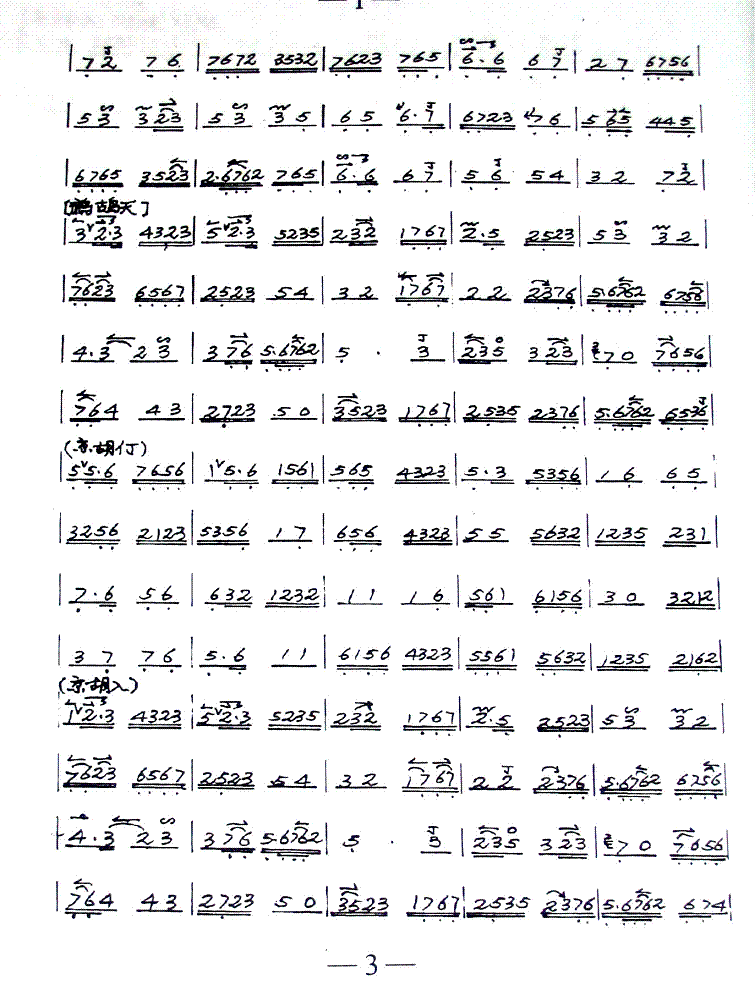 — 1 —
| 7 2 7 6 | 7672 3532 | 7623 765 | 6·6 6 7 | 2 7 6756 |
| 5 3 3 23 | 5 3 3 5 | 6 5 6·7 | 6723 76 | 5 65 445 |
| 6765 3523 | 2·6762 765 | 6·6 6 7 | 5 6 5 4 | 3 2 7 2 |
| 3 2·3 4323 | 5 2·3 5235 | 232 1767 | 2·5 2523 | 5 3 3 2 |
| 7623 6567 | 2523 5 4 | 3 2 1767 | 2 2 2376 | 5·6762 6756 |
| 4·3 2 3 | 3 76 5·6762 | 5 · 3 | 235 3 23 | 7 0 7656 |
| 764 4 3 | 2723 5 0 | 3523 1767 | 2535 2376 | 5·6762 6536 |
(京胡停)
| 5 5·6 7656 | 1 5·6 1561 | 565 4323 | 5·3 5356 | 1 6 6 5 |
| 3256 2123 | 5356 1 7 | 656 4323 | 5 5 5632 | 1235 231 |
| 7·6 5 6 | 632 1232 | 1 1 1 6 | 561 6156 | 3 0 3212 |
| 3 7 7 6 | 5·6 1 1 | 6156 4323 | 5561 5632 | 1235 2162 |
(京胡入)
| 1 2·3 4323 | 5 2·3 5235 | 232 1767 | 2·5 2523 | 5 3 3 2 |
| 7623 6567 | 2523 5 4 | 3 2 1767 | 2 2 2376 | 5·6762 6756 |
| 4·3 2 3 | 3 76 5·6762 | 5 · 3 | 235 3 23 | 7 0 7656 |
| 764 4 3 | 2723 5 0 | 3523 1767 | 2535 2376 | 5·6762 674 |
— 3 —